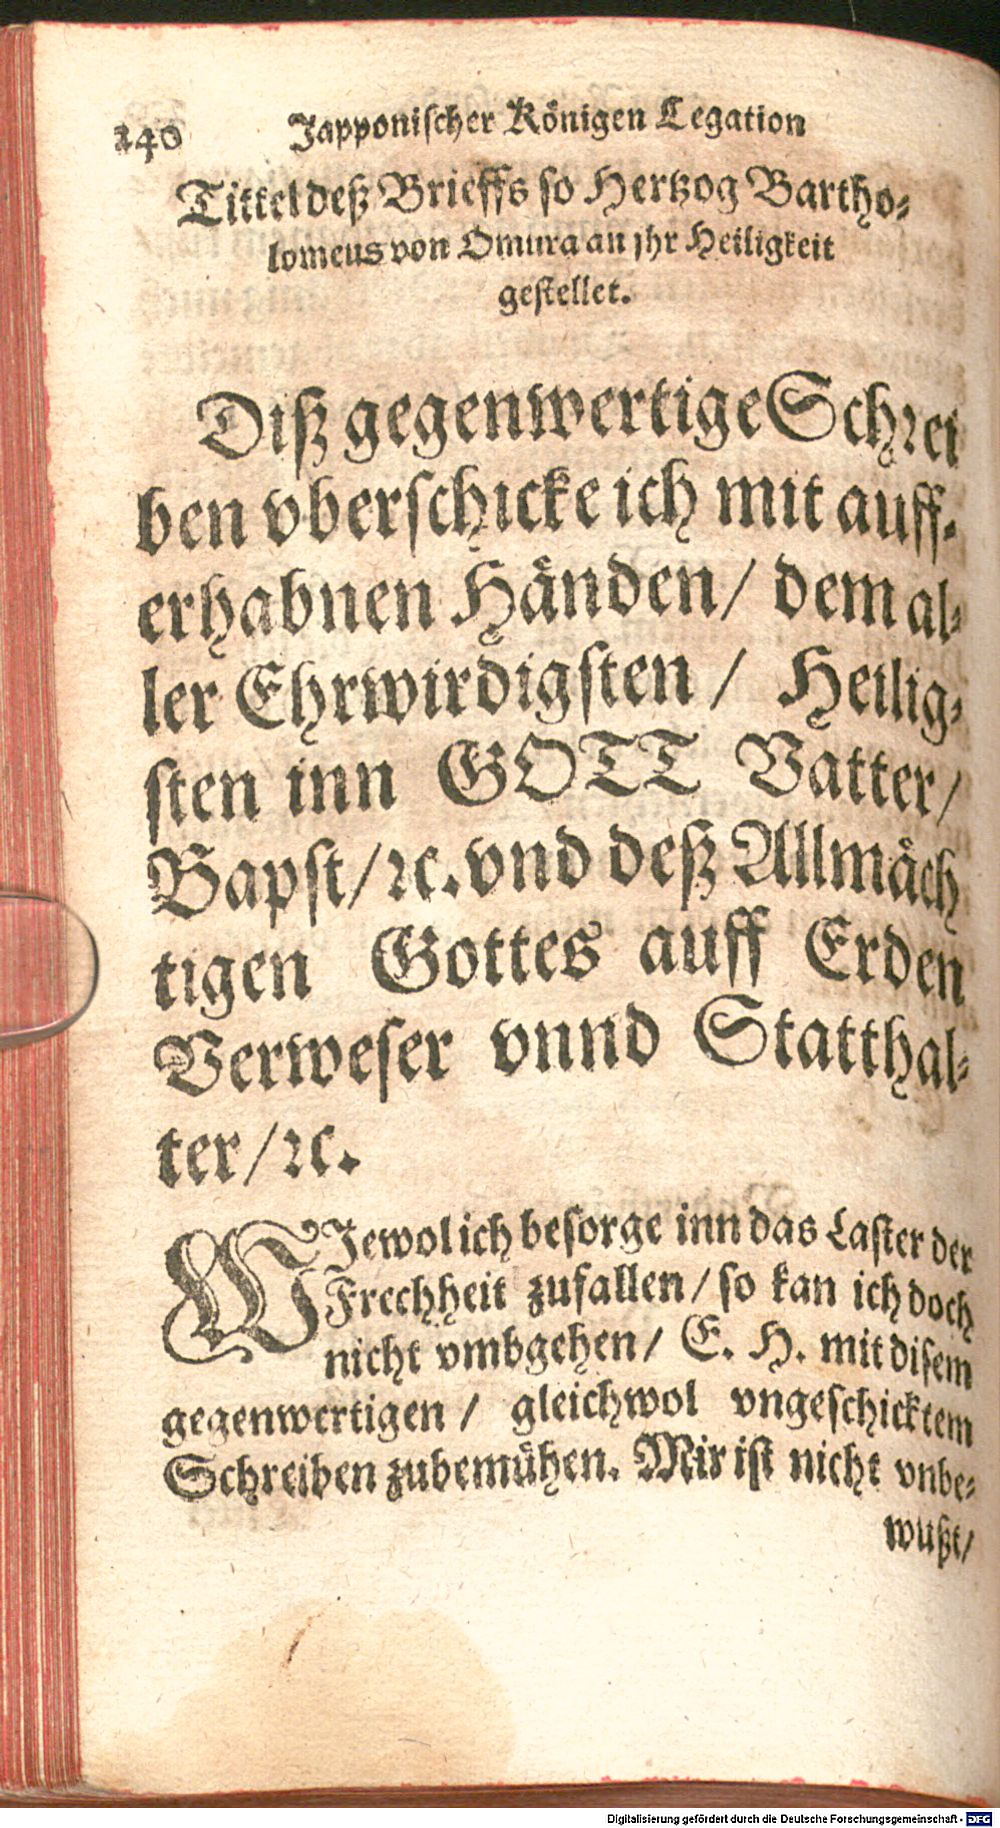 240 Japponischer Königen Legation
Tittel deß Brieffs so Hertzog Bartho-
lomeus von Omura an jhr Heiligkeit
gestellet.
Diß gegenwertige Schrei
ben vberschicke ich mit auff-
erhabnen Händen/ dem al-
ler Ehrwirdigsten/ Heilig-
sten inn GOTT Vatter/
Bapst/ꝛc. vnd deß Allmäch
tigen Gottes auff Erden
Verweser vnnd Statthal-
ter/ꝛc.
WJewol ich besorge inn das Laster der
Frechheit zufallen/ so kan ich doch
nicht vmbgehen/ E. H. mit disem
gegenwertigen/ gleichwol vngeschicktem
Schreiben zubemühen. Mir ist nicht vnbe-
wußt/
Digitalisierung gefördert durch die Deutsche Forschungsgemeinschaft - DFG